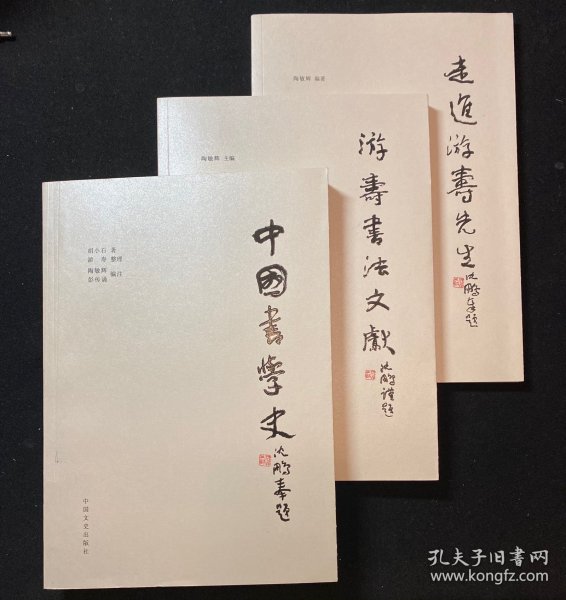 走进游寿先生
沈鹏奉题
陶敏辉 编著
游寿书法文献
沈鹏谨题
陶敏辉 主编
中國書學史
沈鹏奉题
胡小石 著
游 寿 整理
陶敏辉 编注
彭传涵
中国文史出版社
孔夫子旧书网
www.kongfz.com